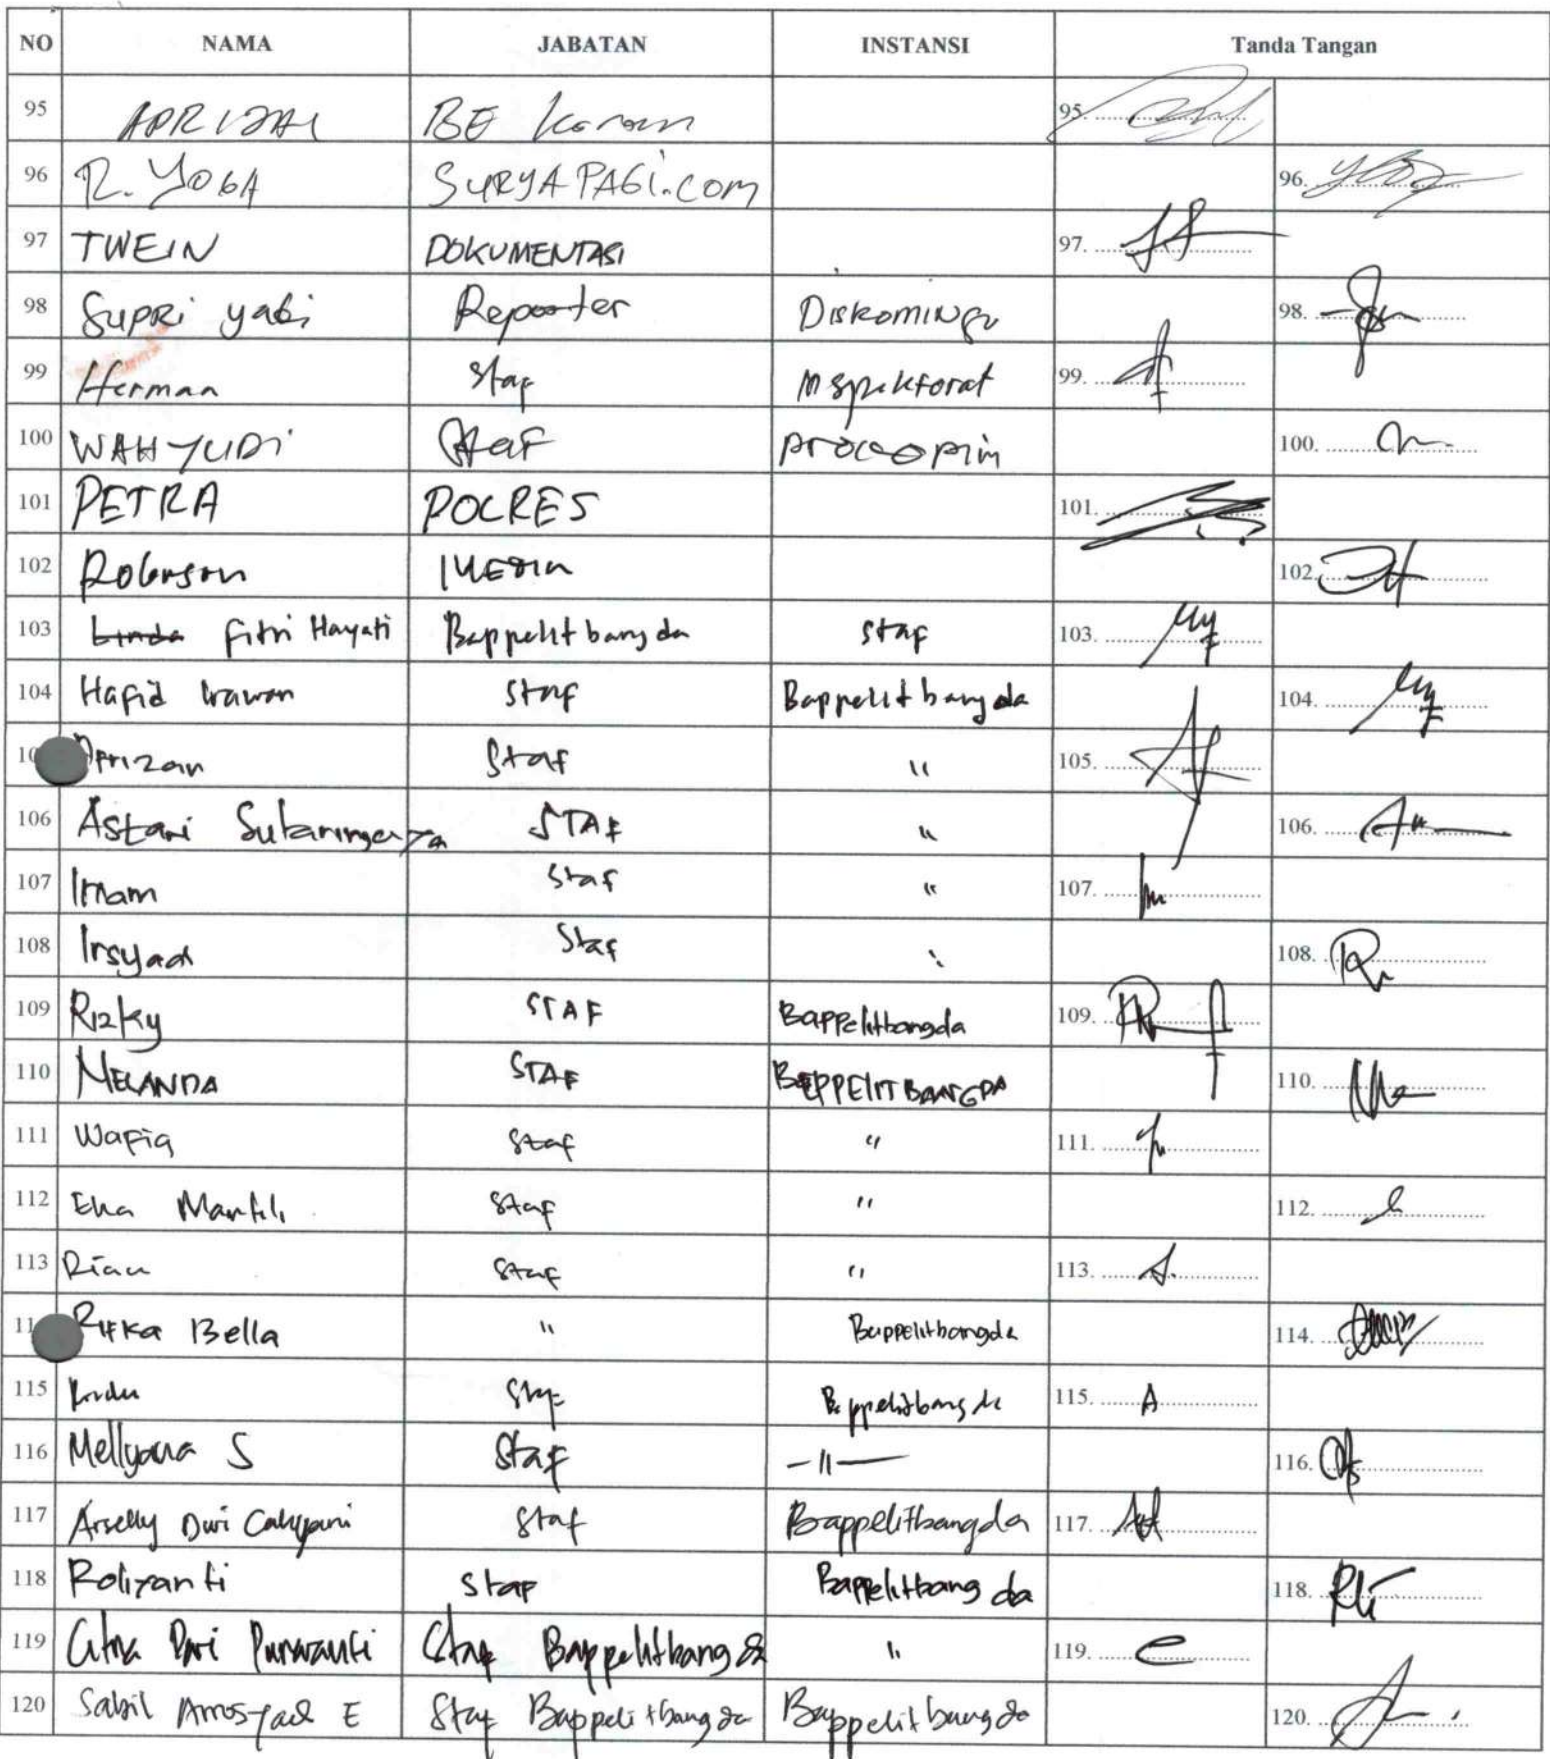 NO NAMA JABATAN INSTANSI Tanda Tangan
95 APRIZAL BE 95.
96 R. YOGA SURYAPAGI.COM 96.
97 TWEIN DOKUMENTASI 97.
98 Supri yadi Reporter Diskominfo 98.
99 Herman Staf Inspektorat 99.
100 WAHYUDI Staf procopim 100.
101 PETRA POLRES 101.
102 Roberson MEDIA 102.
103 Linda Fitri Hayati Bappelitbangda staf 103.
104 Hafid Irawan Staf Bappelitbangda 104.
Aprizan Staf " 105.
106 Astari STAF " 106.
107 Imam Staf " 107.
108 Irsyad Staf " 108.
109 Rizky STAF Bappelitbangda 109.
110 MELANDA STAF BEPPELITBANGDA 110.
111 Wafiq Staf " 111.
112 Eka Staf " 112.
113 Rian Staf " 113.
Rifka Bella " Bappelitbangda 114.
115 Staf Bappelitbangda 115.
116 Mellyana S Staf -"- 116.
117 Arselly Dwi Cahyani Staf Bappelitbangda 117.
118 Roliyanti Staf Bappelitbangda 118.
119 Citra Purwanti Staf Bappelitbangda " 119.
120 Sabil E Staf Bappelitbangda Bappelitbangda 120.